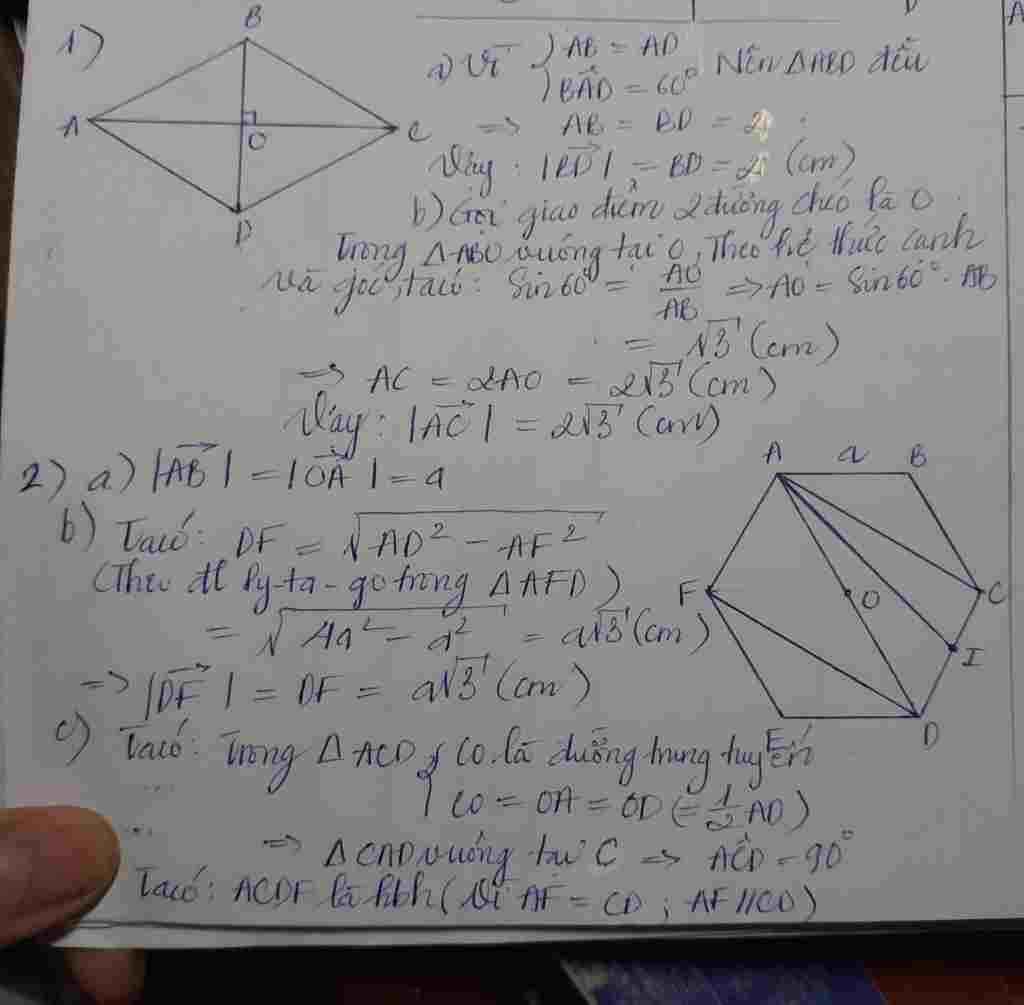 1)
B
A
C
O
D
a) Vì { AB = AD
BÂD = 60° Nên ΔABD đều
=> AB = BD = 2
Vậy: |BD| = BD = 2 (cm)
b) Gọi giao điểm 2 đường chéo là O
Trong ΔABO vuông tại O, Theo hệ thức cạnh
và góc, ta có: Sin60° = AO/AB => AO = Sin60°. AB
= √3 (cm)
=> AC = 2AO = 2√3 (cm)
Vậy: |AC| = 2√3 (cm)
2) a) |AB| = |OA| = a
b) Ta có: DF = √AD² - AF²
(Theo đl Py-ta-go trong ΔAFD)
= √4a² - a² = a√3 (cm)
=> |DF| = DF = a√3 (cm)
A a B
F O C
I
D
E
c) Ta có: Trong ΔACD { CO là đường trung tuyến
CO = OA = OD (= 1/2 AD)
=> ΔCAD vuông tại C => AĈD = 90°
Ta có: ACDF là hbh (Vì AF = CD ; AF // CD)